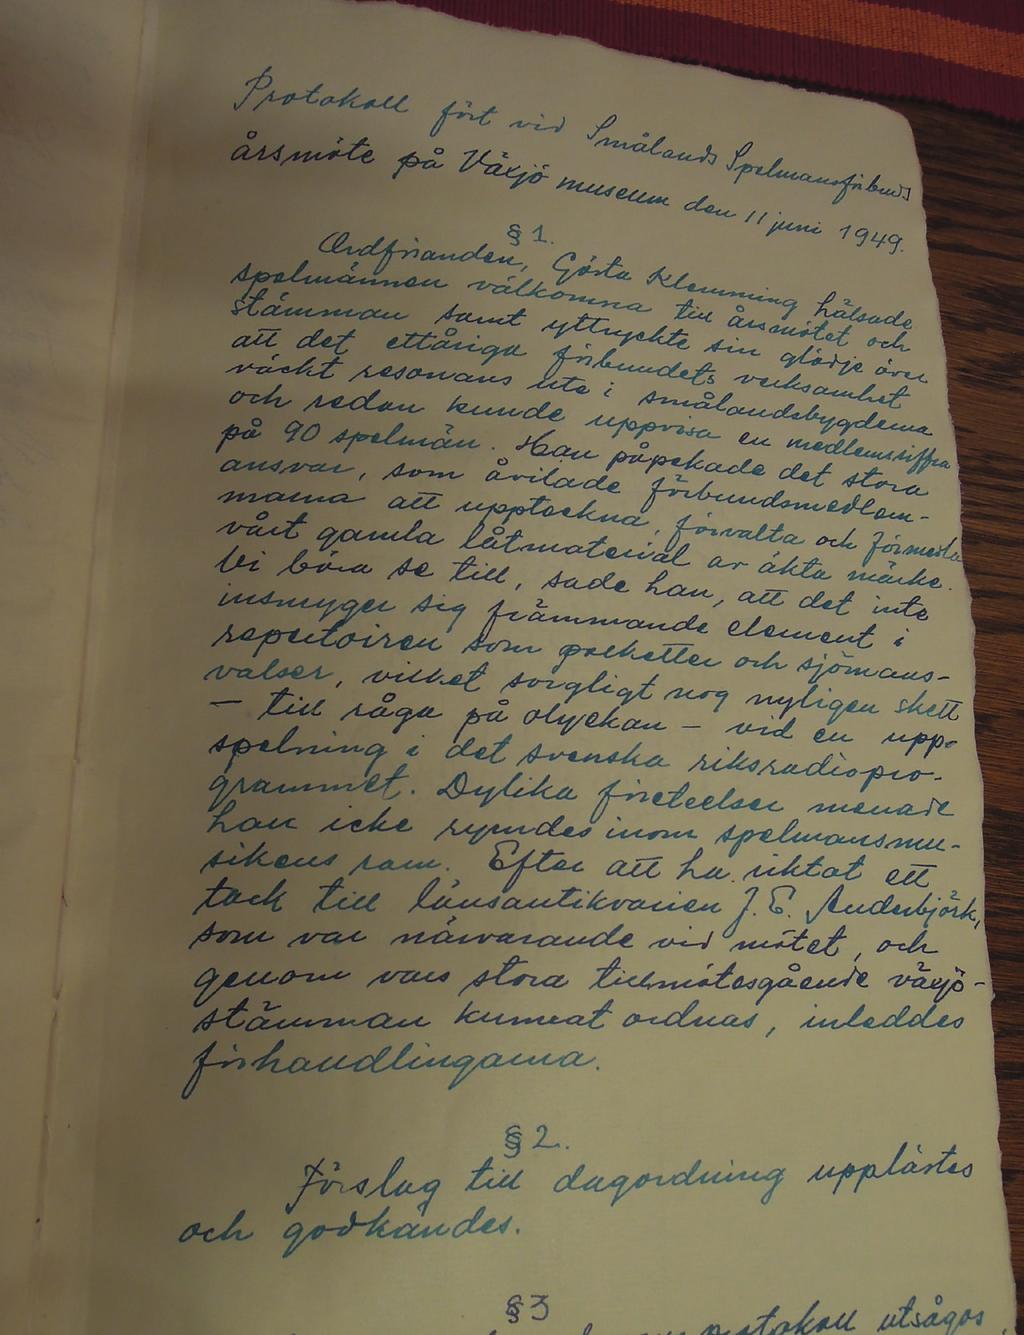 Protokoll fört vid Smålands Spelmansförbunds
årsmöte på Växjö museum den 11 juni 1949.
§ 1.
Ordföranden, Gösta Klemming hälsade
spelmännen välkomna till årsmötet och
stämman samt yttryckte sin glädje över
att det ettåriga förbundets verksamhet
väckt resonans ute i smålandsbygderna
och redan kunde uppvisa en medlemssiffra
på 90 spelmän. Han påpekade det stora
ansvar, som åvilade förbundsmedlem-
marna att uppteckna, förvalta och förmedla
vårt gamla låtmaterial av äkta märke.
Vi böra se till, sade han, att det inte
insmyger sig främmande element i
repertoiren som polketter och sjömans-
valser, vilket sorgligt nog nyligen skett
– till råga på olyckan – vid en upp-
spelning i det svenska riksradiopro-
grammet. Dylika företeelser menade
han icke rymdes inom spelmansmu-
sikens ram. Efter att ha riktat ett
tack till länsantikvarien J. E. Anderbjörk,
som var närvarande vid mötet, och
genom vars stora tillmötesgående växjö-
stämman kunnat ordnas, inleddes
förhandlingarna.
§ 2.
Förslag till dagordning upplästes
och godkändes.
§ 3
protokoll utsågos